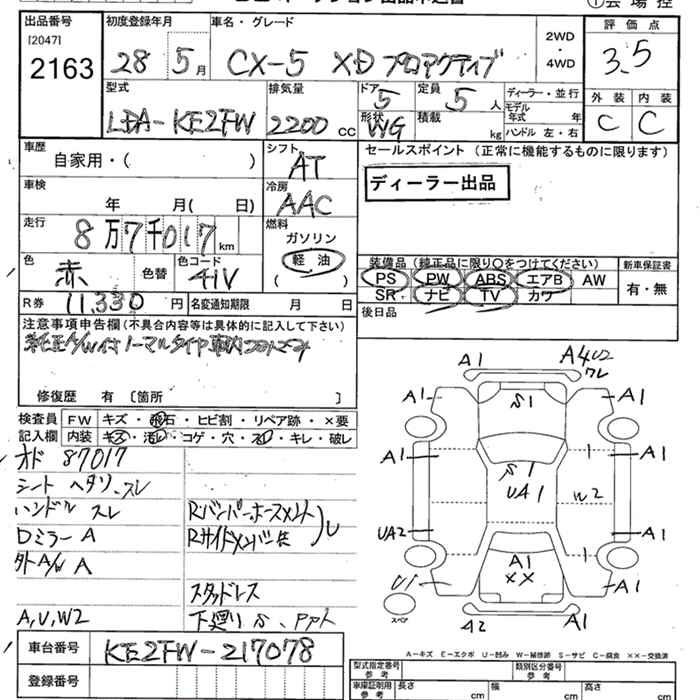 ① 会 場 控
出品番号 初度登録年月 車名・グレード 評 価 点
[2047]
2163 28 5月 CX-5 XD プロアクティブ 2WD・4WD 3.5
型式 排気量 ドア 定員 ディーラー・並行 外装 内装
LDA-KE2FW 2200 CC 5 5 人 モデル年式 年 C C
形状 WG 積載 kg ハンドル 左・右
車歴 シフト セールスポイント (正常に機能するものに限ります)
自家用・( ) AT
ディーラー出品
車検 冷房
年 月( 日) AAC
走行 燃料
8万7千017km ガソリン
軽油
( )
色 色コード
赤 色替 41V
装備品 (純正品に限り○をつけてください) 新車保証書
PS PW ABS エアB AW 有・無
SR ナビ TV カワ
R券 11,330 円 名変通知期限 月 日 後日品
注意事項申告欄(不具合内容等は具体的に記入して下さい)
修復歴 有 [箇所 ]
検査員 FW キズ・飛石・ヒビ割・リペア跡・×要
記入欄 内装 キズ・汚レ・コゲ・穴・スレ・キレ・破レ
オド 87017
シート ヘタリ、スレ
ハンドル スレ
Dミラー A
外A/W A
スタッドレス
A,U,W2 下廻り S、
A1 A4U2
ワレ
A1 S1 A1
A1 S1 A1
UA1 W2
UA2 A1
A1
U1 ×× A1
スペア A2 A1
A-キズ E-エクボ U-凹み W-補修跡 S-サビ C-腐食 ××-交換済
車台番号 KE2FW-217078
登録番号
型式指定番号 参考 類別区分番号 参考
車庫証明用 参考 長さ cm 幅 cm 高さ cm